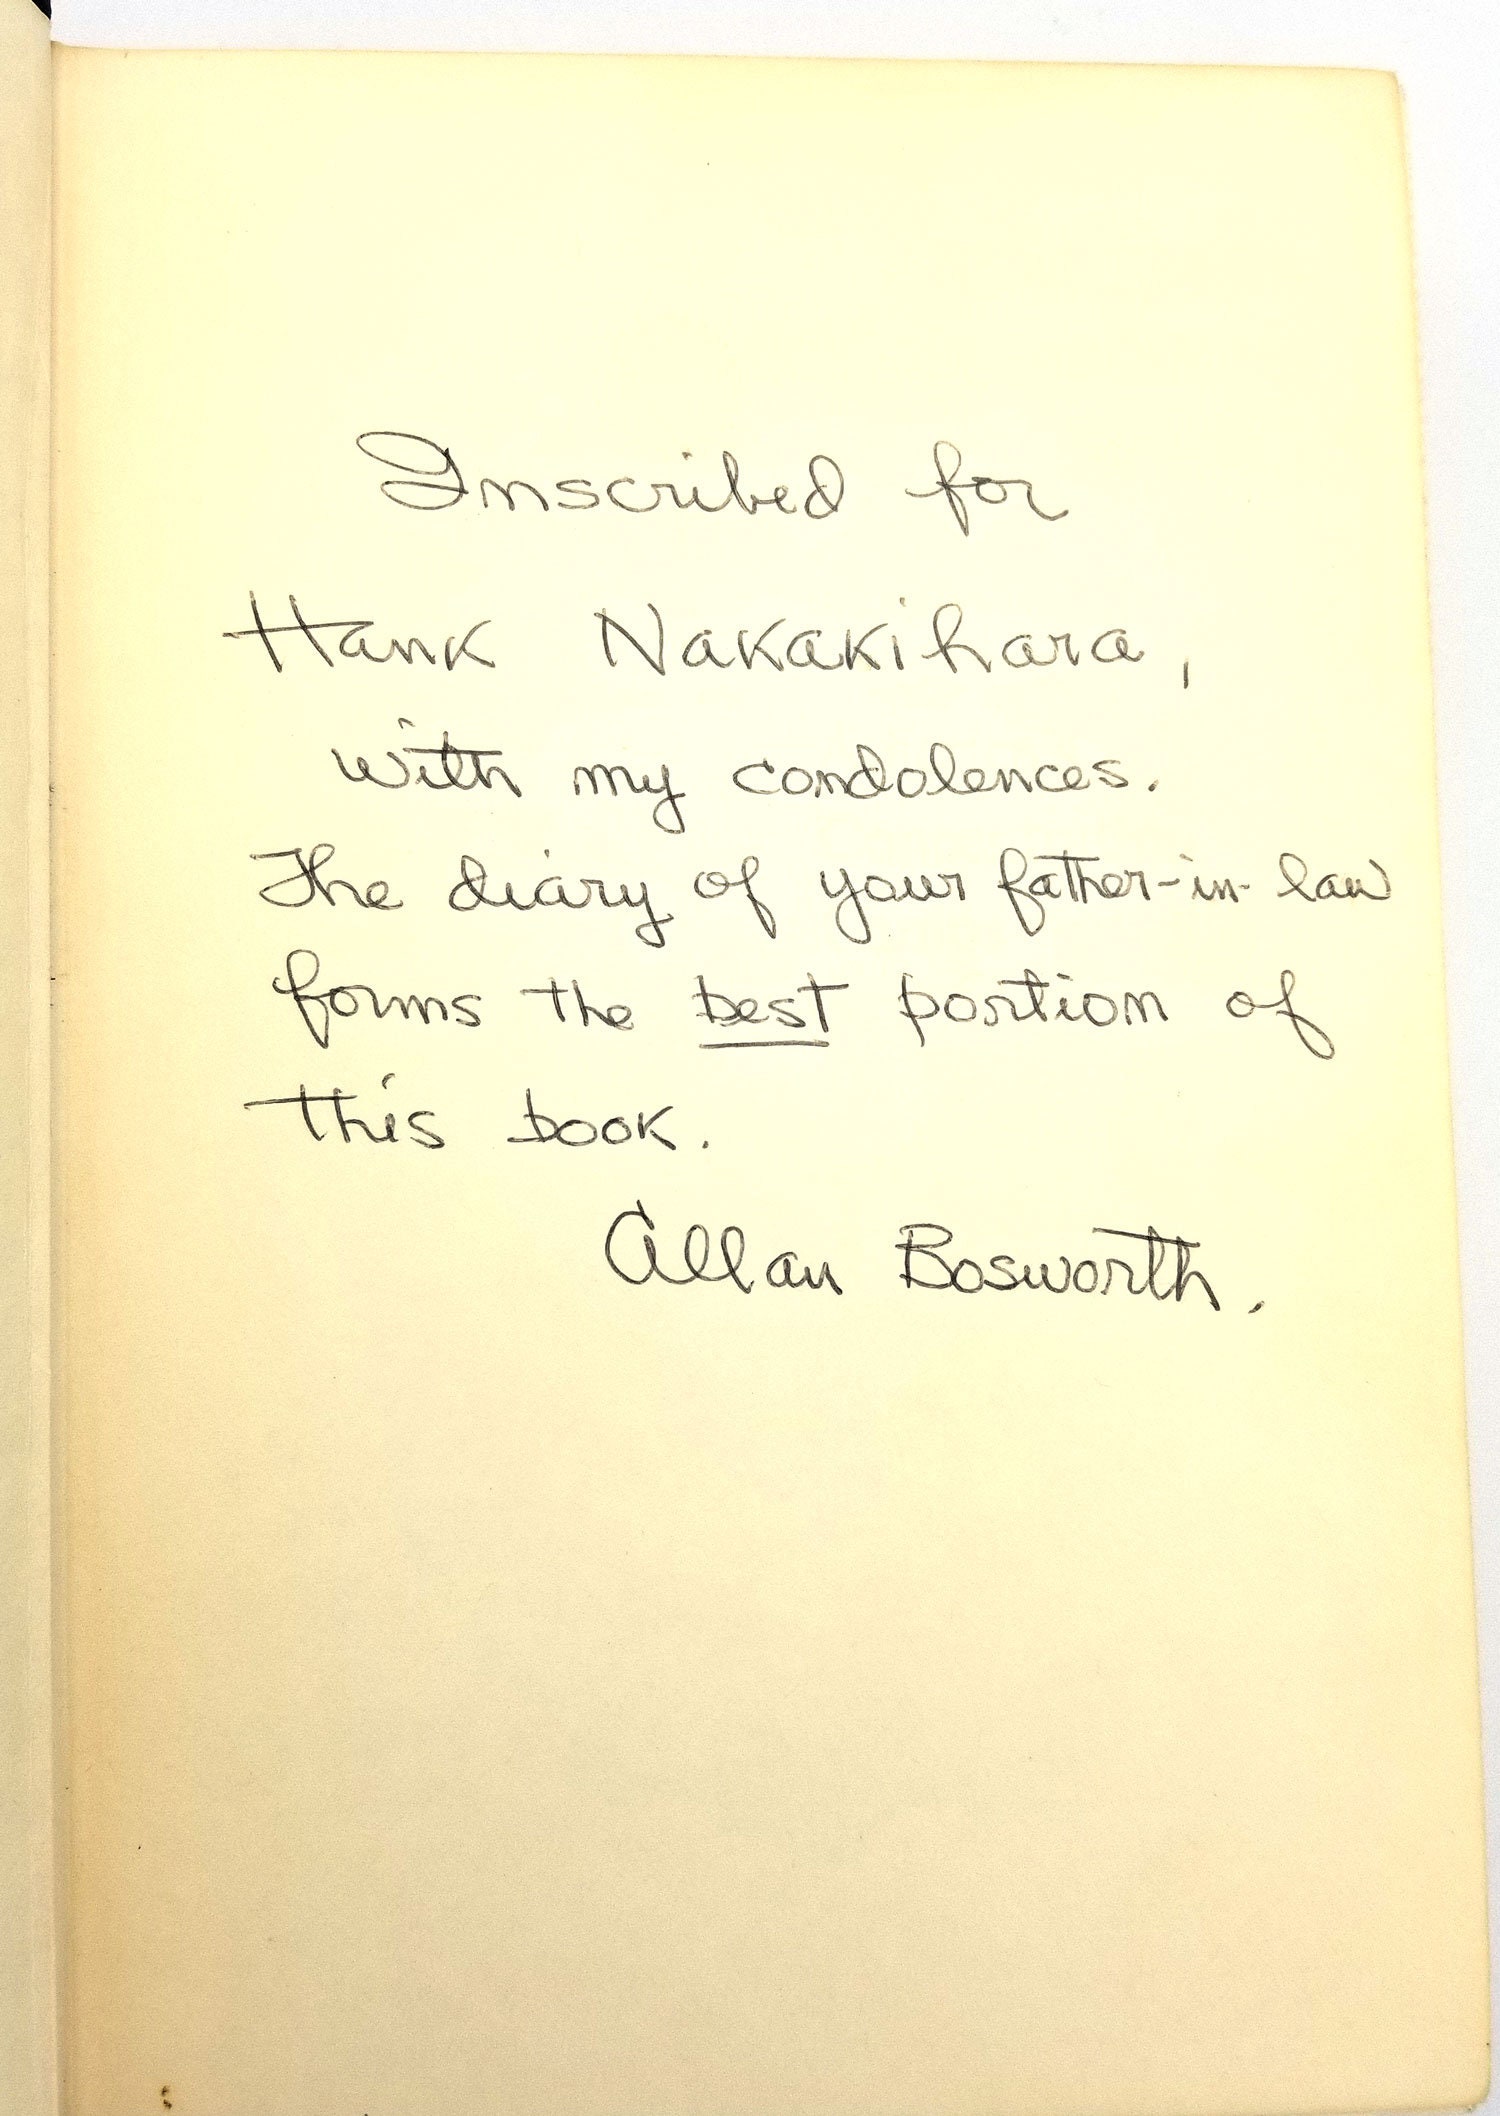 Inscribed for
Hank Nakakihara,
with my condolences.
The diary of your father-in-law
forms the best portion of
this book.
Allan Bosworth.